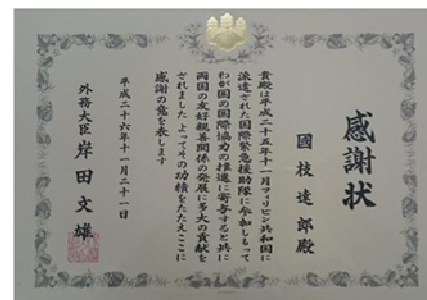 感謝状
國枝達郎殿
貴殿は平成二十五年十一月フィリピン共和国に
派遣された国際緊急援助隊に参加しもって
わが国の国際協力の推進に寄与すると共に
両国の友好親善関係の発展に多大の貢献を
されました よってその功績をたたえここに
感謝の意を表します
平成二十六年十一月二十一日
外務大臣 岸田文雄